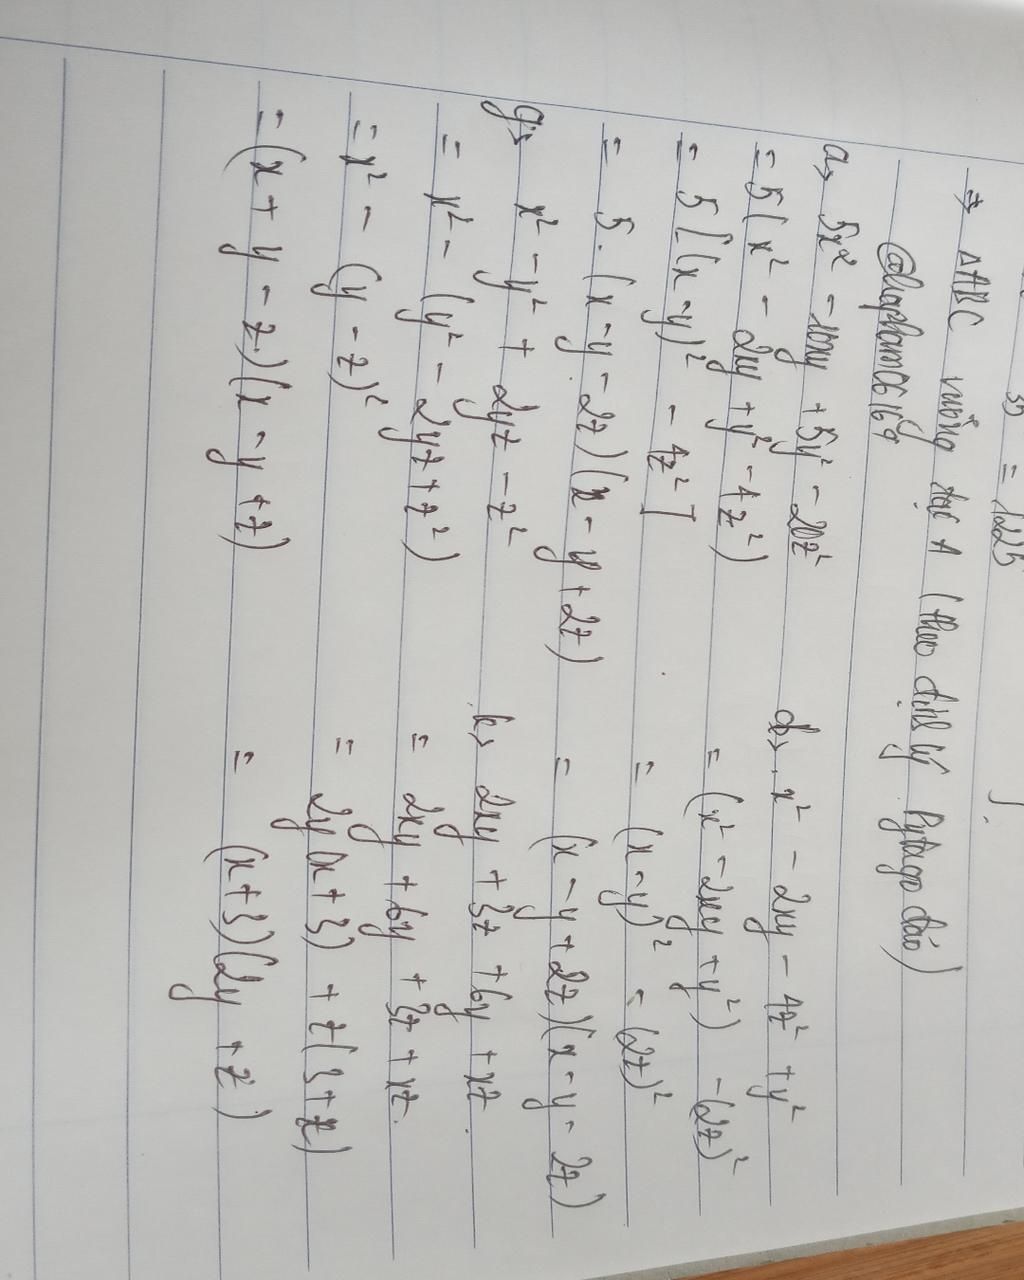 35 = 1225
⇒ ΔABC vuông tại A (theo định lý Pytago đảo)
@hapham06169
a, 5x² - 10xy + 5y² - 20z²
= 5(x² - 2xy + y² - 4z²)
= 5[(x - y)² - 4z²]
= 5.(x - y - 2z)(x - y + 2z)
d, x² - 2xy - 4z² + y²
= (x² - 2xy + y²) - (2z)²
= (x - y)² - (2z)²
= (x - y + 2z)(x - y - 2z)
g, x² - y² + 2yz - z²
= x² - (y² - 2yz + z²)
= x² - (y - z)²
= (x + y - z)(x - y + z)
k, 2xy + 3z + 6y + xz.
= 2xy + 6y + 3z + xz.
= 2y(x + 3) + z(3 + x)
= (x + 3)(2y + z)